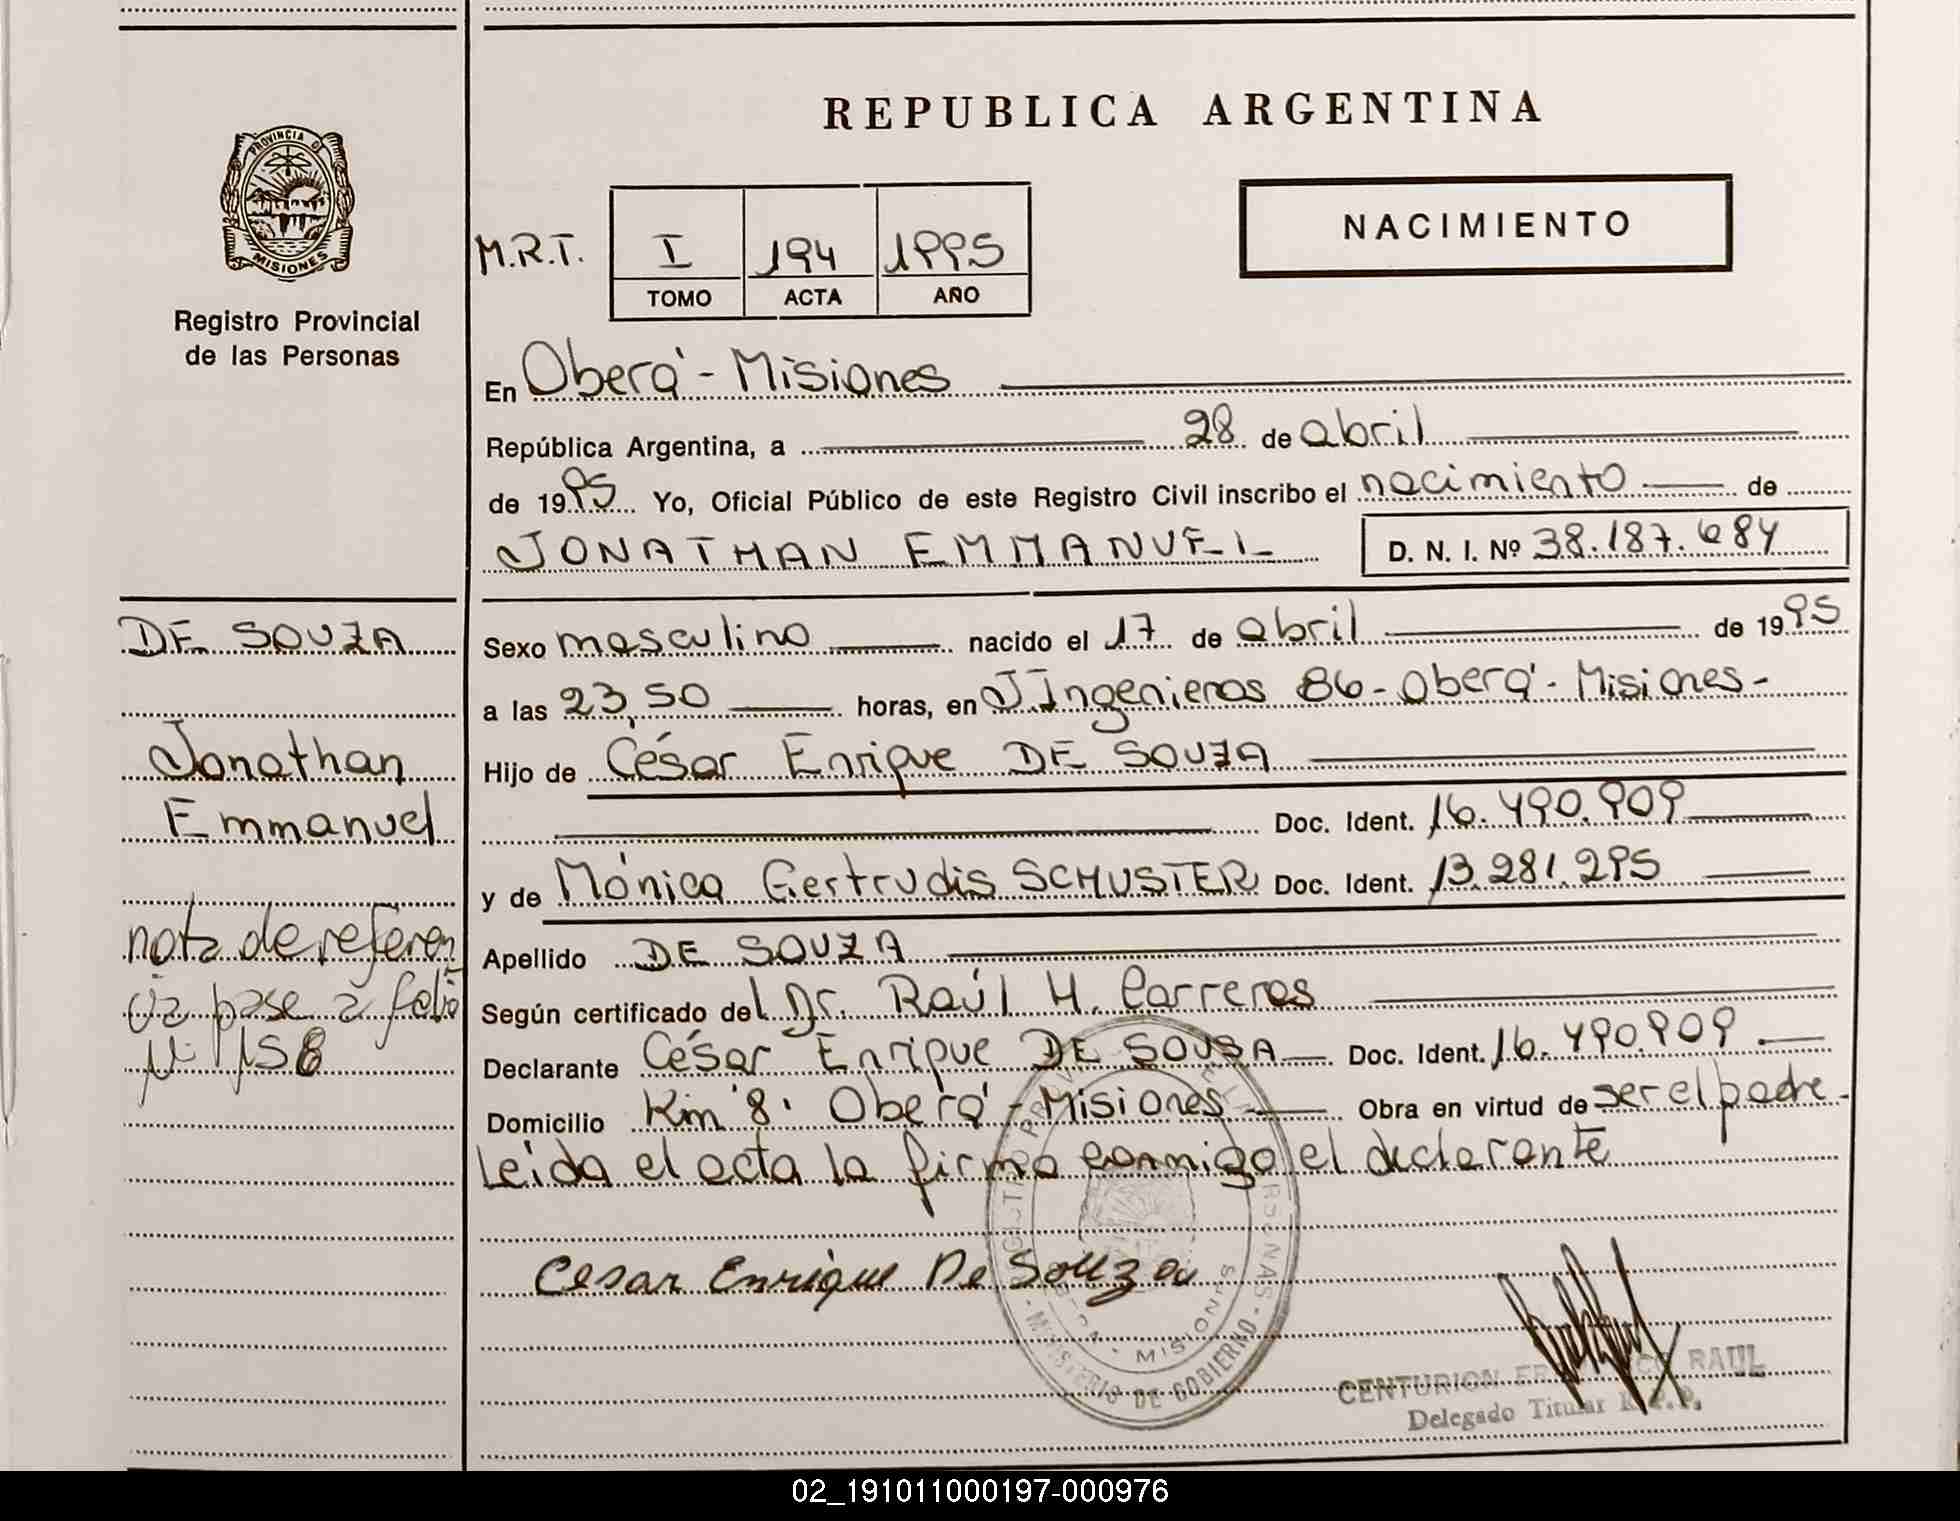 REPUBLICA ARGENTINA
PROVINCIA D
MISIONES
Registro Provincial
de las Personas
M.R.T.
I 194 1995
TOMO ACTA AÑO
NACIMIENTO
En Oberá - Misiones
República Argentina, a 28 de abril
de 1995 Yo, Oficial Público de este Registro Civil inscribo el nacimiento de
JONATHAN EMMANUEL D. N. I. Nº 38.187.684
DE SOUZA
Jonathan
Emmanuel
nota de referen
cia pase a folio
Nº 158
Sexo masculino nacido el 17 de abril de 1995
a las 23,50 horas, en J.Ingenieros 86 - Oberá - Misiones -
Hijo de César Enrique DE SOUZA
Doc. Ident. 16.490.909
y de Mónica Gertrudis SCHUSTER Doc. Ident. 13.281.295
Apellido DE SOUZA
Según certificado del Dr. Raúl H. Carreras
Declarante César Enrique DE SOUSA Doc. Ident. 16.490.909.
Domicilio Km 8. Oberá - Misiones Obra en virtud de ser el padre -
Leida el acta la firma conmigo el declarante
Cesar Enrique De Souza
MISIONES
MINISTERIO DE GOBIERNO
CENTURION RAUL
Delegado Titular R.P.P.
02_191011000197-000976